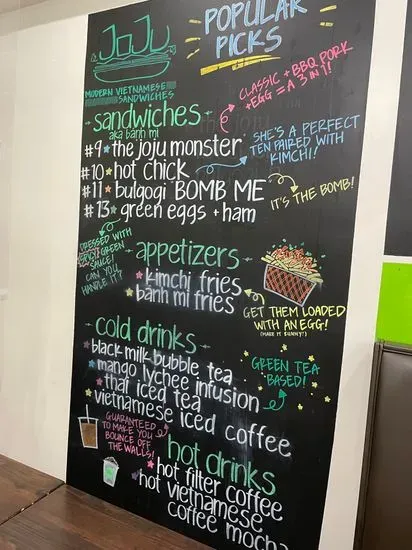 JOJU
MODERN VIETNAMESE
SANDWICHES
POPULAR
PICKS
CLASSIC + BBQ PORK
+ EGG = A 3 IN 1!
sandwiches
aka bánh mì
#9 the joju monster
#10 hot chick
SHE'S A PERFECT
TEN PAIRED WITH
KIMCHI!
#11 bulgogi BOMB ME
IT'S THE BOMB!
#13 green eggs + ham
DRESSED WITH
SPICY GREEN
SAUCE!
CAN YOU
HANDLE IT?
appetizers
kimchi fries
bánh mì fries
GET THEM LOADED
WITH AN EGG!
(MAKE IT SUNNY!)
cold drinks
black milk bubble tea
mango lychee infusion
thai iced tea
vietnamese iced coffee
GREEN TEA
BASED!
GUARANTEED
TO MAKE YOU
BOUNCE OFF
THE WALLS!
hot drinks
hot filter coffee
hot vietnamese
coffee mocha